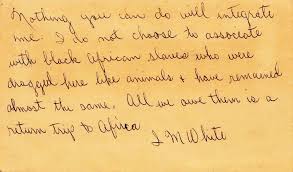 Nothing you can do will integrate
me. I do not choose to associate
with black African slaves who were
dragged here like animals & have remained
almost the same. All we owe them is a
return trip to Africa
J M White